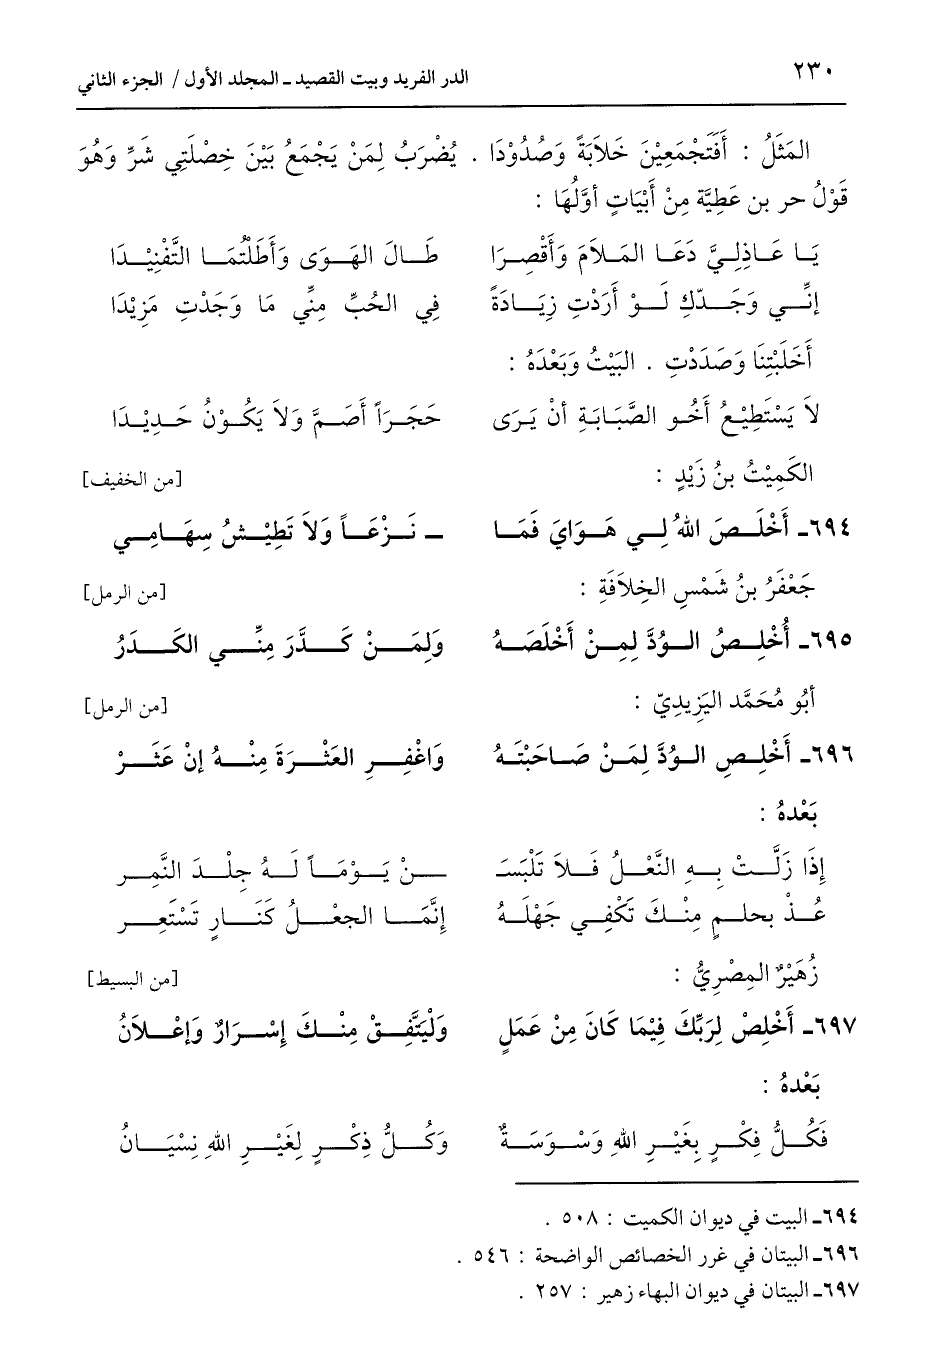 ٢٣٠ الدر الفريد وبيت القصيد - المجلد الأول / الجزء الثاني
المَثَلُ : أَفَتَجْمَعِيْنَ خَلاَبَةً وَصُدُوْدَا . يُضْرَبُ لِمَنْ يَجْمَعُ بَيْنَ خِصْلَتِي شَرٍّ وَهُوَ
قَوْلُ حر بن عَطِيَّة مِنْ أَبْيَاتٍ أوَّلُهَا :
يَـا عَـاذِلِـيَّ دَعَـا المَـلاَمَ وَأَقْصِـرَا طَـالَ الهَـوَى وَأَطَلْتُمَـا التَّفْنِيْـدَا
إنِّـي وَجَـدِّكِ لَـوْ أَرَدْتِ زِيَـادَةً فِي الحُبِّ مِنِّي مَا وَجَدْتِ مَزِيْدَا
أَخَلَبْتِنَا وَصَدَدْتِ . البَيْتُ وَبَعْدَهُ :
لاَ يَسْتَطِيْعُ أَخُـو الصَّبَابَـةِ أنْ يَـرَى حَجَـرَاً أَصَـمَّ وَلاَ يَكُـوْنُ حَـدِيْـدَا
الكَمِيْتُ بنُ زَيْدٍ : [من الخفيف]
٦٩٤- أَخْلَـصَ اللهُ لِـي هَـوَايَ فَمَـا ـ نَـزْعَـاً وَلاَ تَطِيْـشُ سِهَـامِـي
جَعْفَرُ بنُ شَمْسِ الخِلاَفَةِ : [من الرمل]
٦٩٥- أُخْلِـصُ الـوُدَّ لِمِـنْ أَخْلَصَـهُ وَلِمَـنْ كَـدَّرَ مِنِّـي الكَـدَرُ
أبُو مُحَمَّد اليَزِيدِيّ : [من الرمل]
٦٩٦- أَخْلِـصِ الـوُدَّ لِمَـنْ صَـاحَبْتَـهُ وَاغْفِـرِ العَثْـرَةَ مِنْـهُ إنْ عَثَـرْ
بَعْدهُ :
إذَا زَلَّـتْ بِـهِ النَّعْـلُ فَـلاَ تَلْبَسَـ ـنْ يَـوْمَـاً لَـهُ جِلْـدَ النَّمِـر
عُـذْ بحلـمٍ مِنْـكَ تَكْفِـي جَهْلَـهُ إنَّمَـا الجَهْـلُ كَنَـارٍ تَسْتَعِـر
زُهَيْرٌ المِصْرِيُّ : [من البسيط]
٦٩٧- أَخْلِصْ لِرَبِّكَ فِيْمَا كَانَ مِنْ عَمَلٍ وَلْيَتَّفِـقْ مِنْـكَ إسْـرَارٌ وَإعْـلاَنُ
بَعْدهُ :
فَكُـلُّ فِكْـرٍ بِغَيْـرِ اللهِ وَسْـوَسَـةٌ وَكُـلُّ ذِكْـرٍ لِغَيْـرِ اللهِ نِسْيَـانُ
٦٩٤- البيت في ديوان الكميت : ٥٠٨ .
٦٩٦- البيتان في غرر الخصائص الواضحة : ٥٤٦ .
٦٩٧- البيتان في ديوان البهاء زهير : ٢٥٧ .